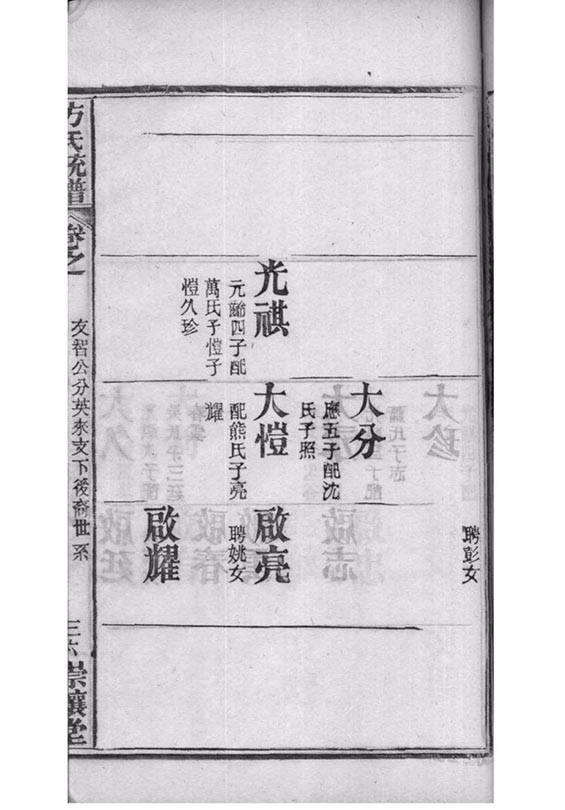 聘彭女
大分
應五子配沈
氏子照
光祺
元爵四子配
萬氏子愷子
愷久珍
大愷
配熊氏子亮
耀
啟亮
聘姚女
啟耀
方氏統譜
卷之
友智公分英來支下後裔世系
三六
崇讓堂